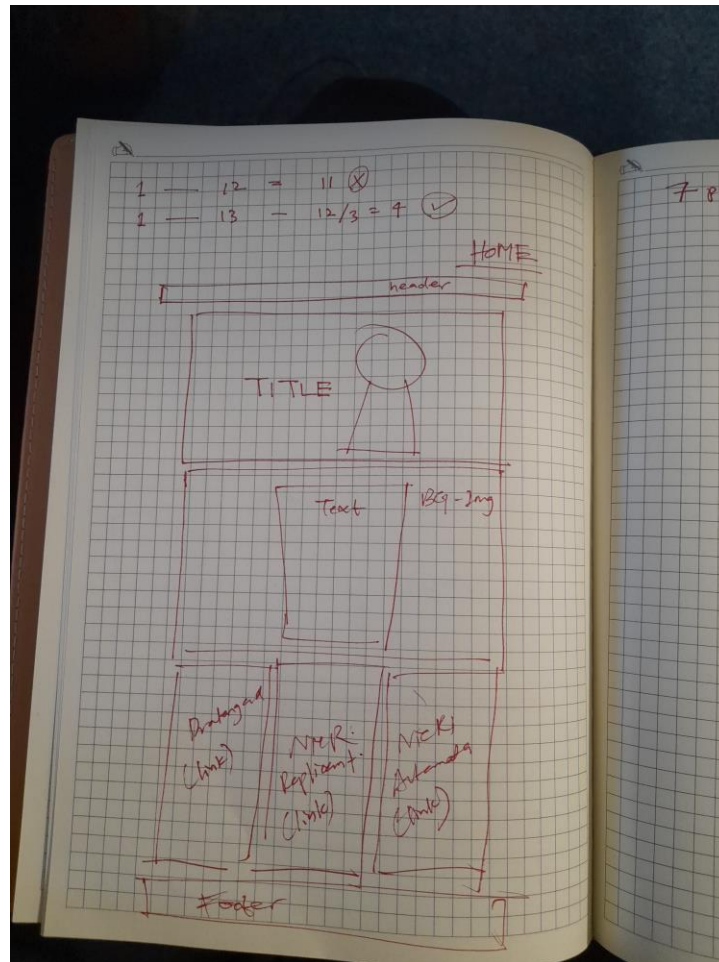 1 — 12 = 11 ⓧ
1 — 13 - 12/3 = 4 ✓
HOME
header
TITLE
Text
BG-Img
Drakengard
(link)
NieR:
Replicant.
(link)
NieR:
Automata
(link)
Footer
7 8